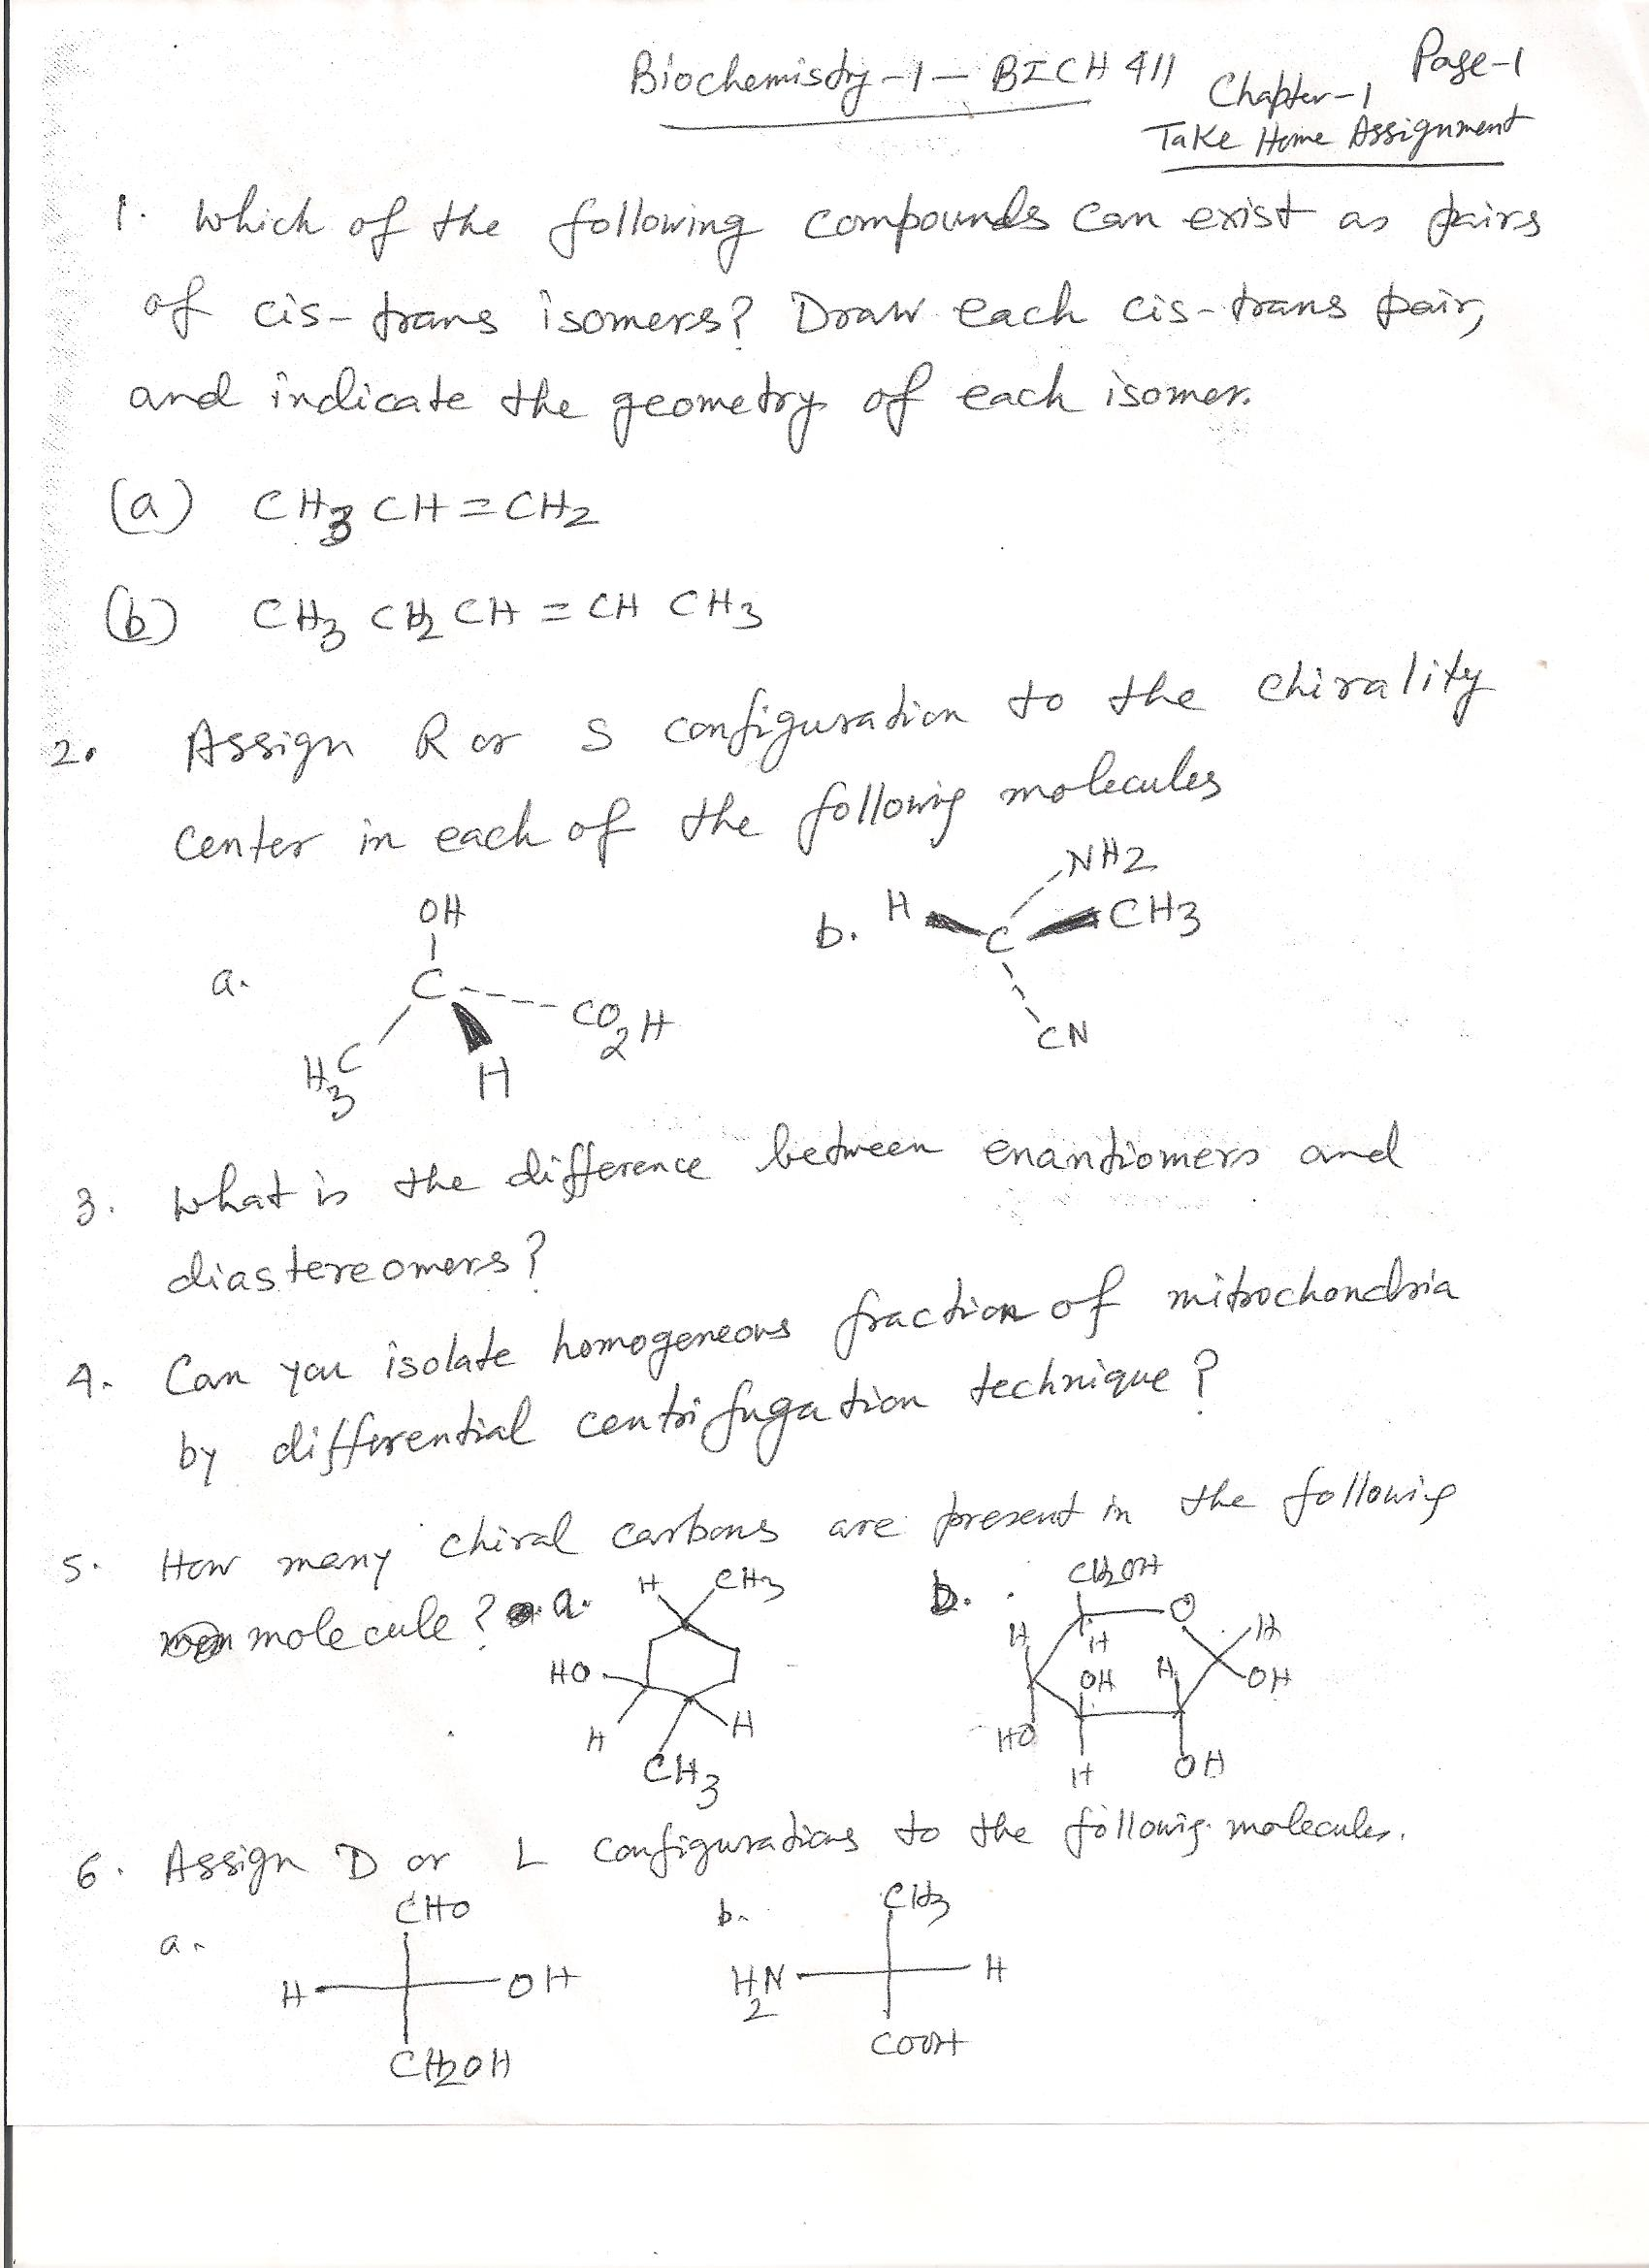 Biochemistry-1- BICH 411 Page-1
Chapter-1
Take Home Assignment
1. Which of the following compounds can exist as pairs
of cis-trans isomers? Draw each cis-trans pair,
and indicate the geometry of each isomer.
(a) CH3 CH=CH2
(b) CH3 CH2 CH = CH CH3
2. Assign R or S configuration to the chirality
center in each of the following molecules
a. OH
C
CO2H
H3C
H
b. H
NH2
C
CH3
CN
3. What is the difference between enantiomers and
diastereomers?
4. Can you isolate homogeneous fraction of mitochondria
by differential centrifugation technique?
5. How many chiral carbons are present in the following
molecule? a. H CH3
HO
H
H
CH3
b. CH2OH
O
H H H
OH H OH
HO
H OH
6. Assign D or L configurations to the following molecules.
a. CHO
H OH
CH2OH
b. CH3
H2N H
COOH